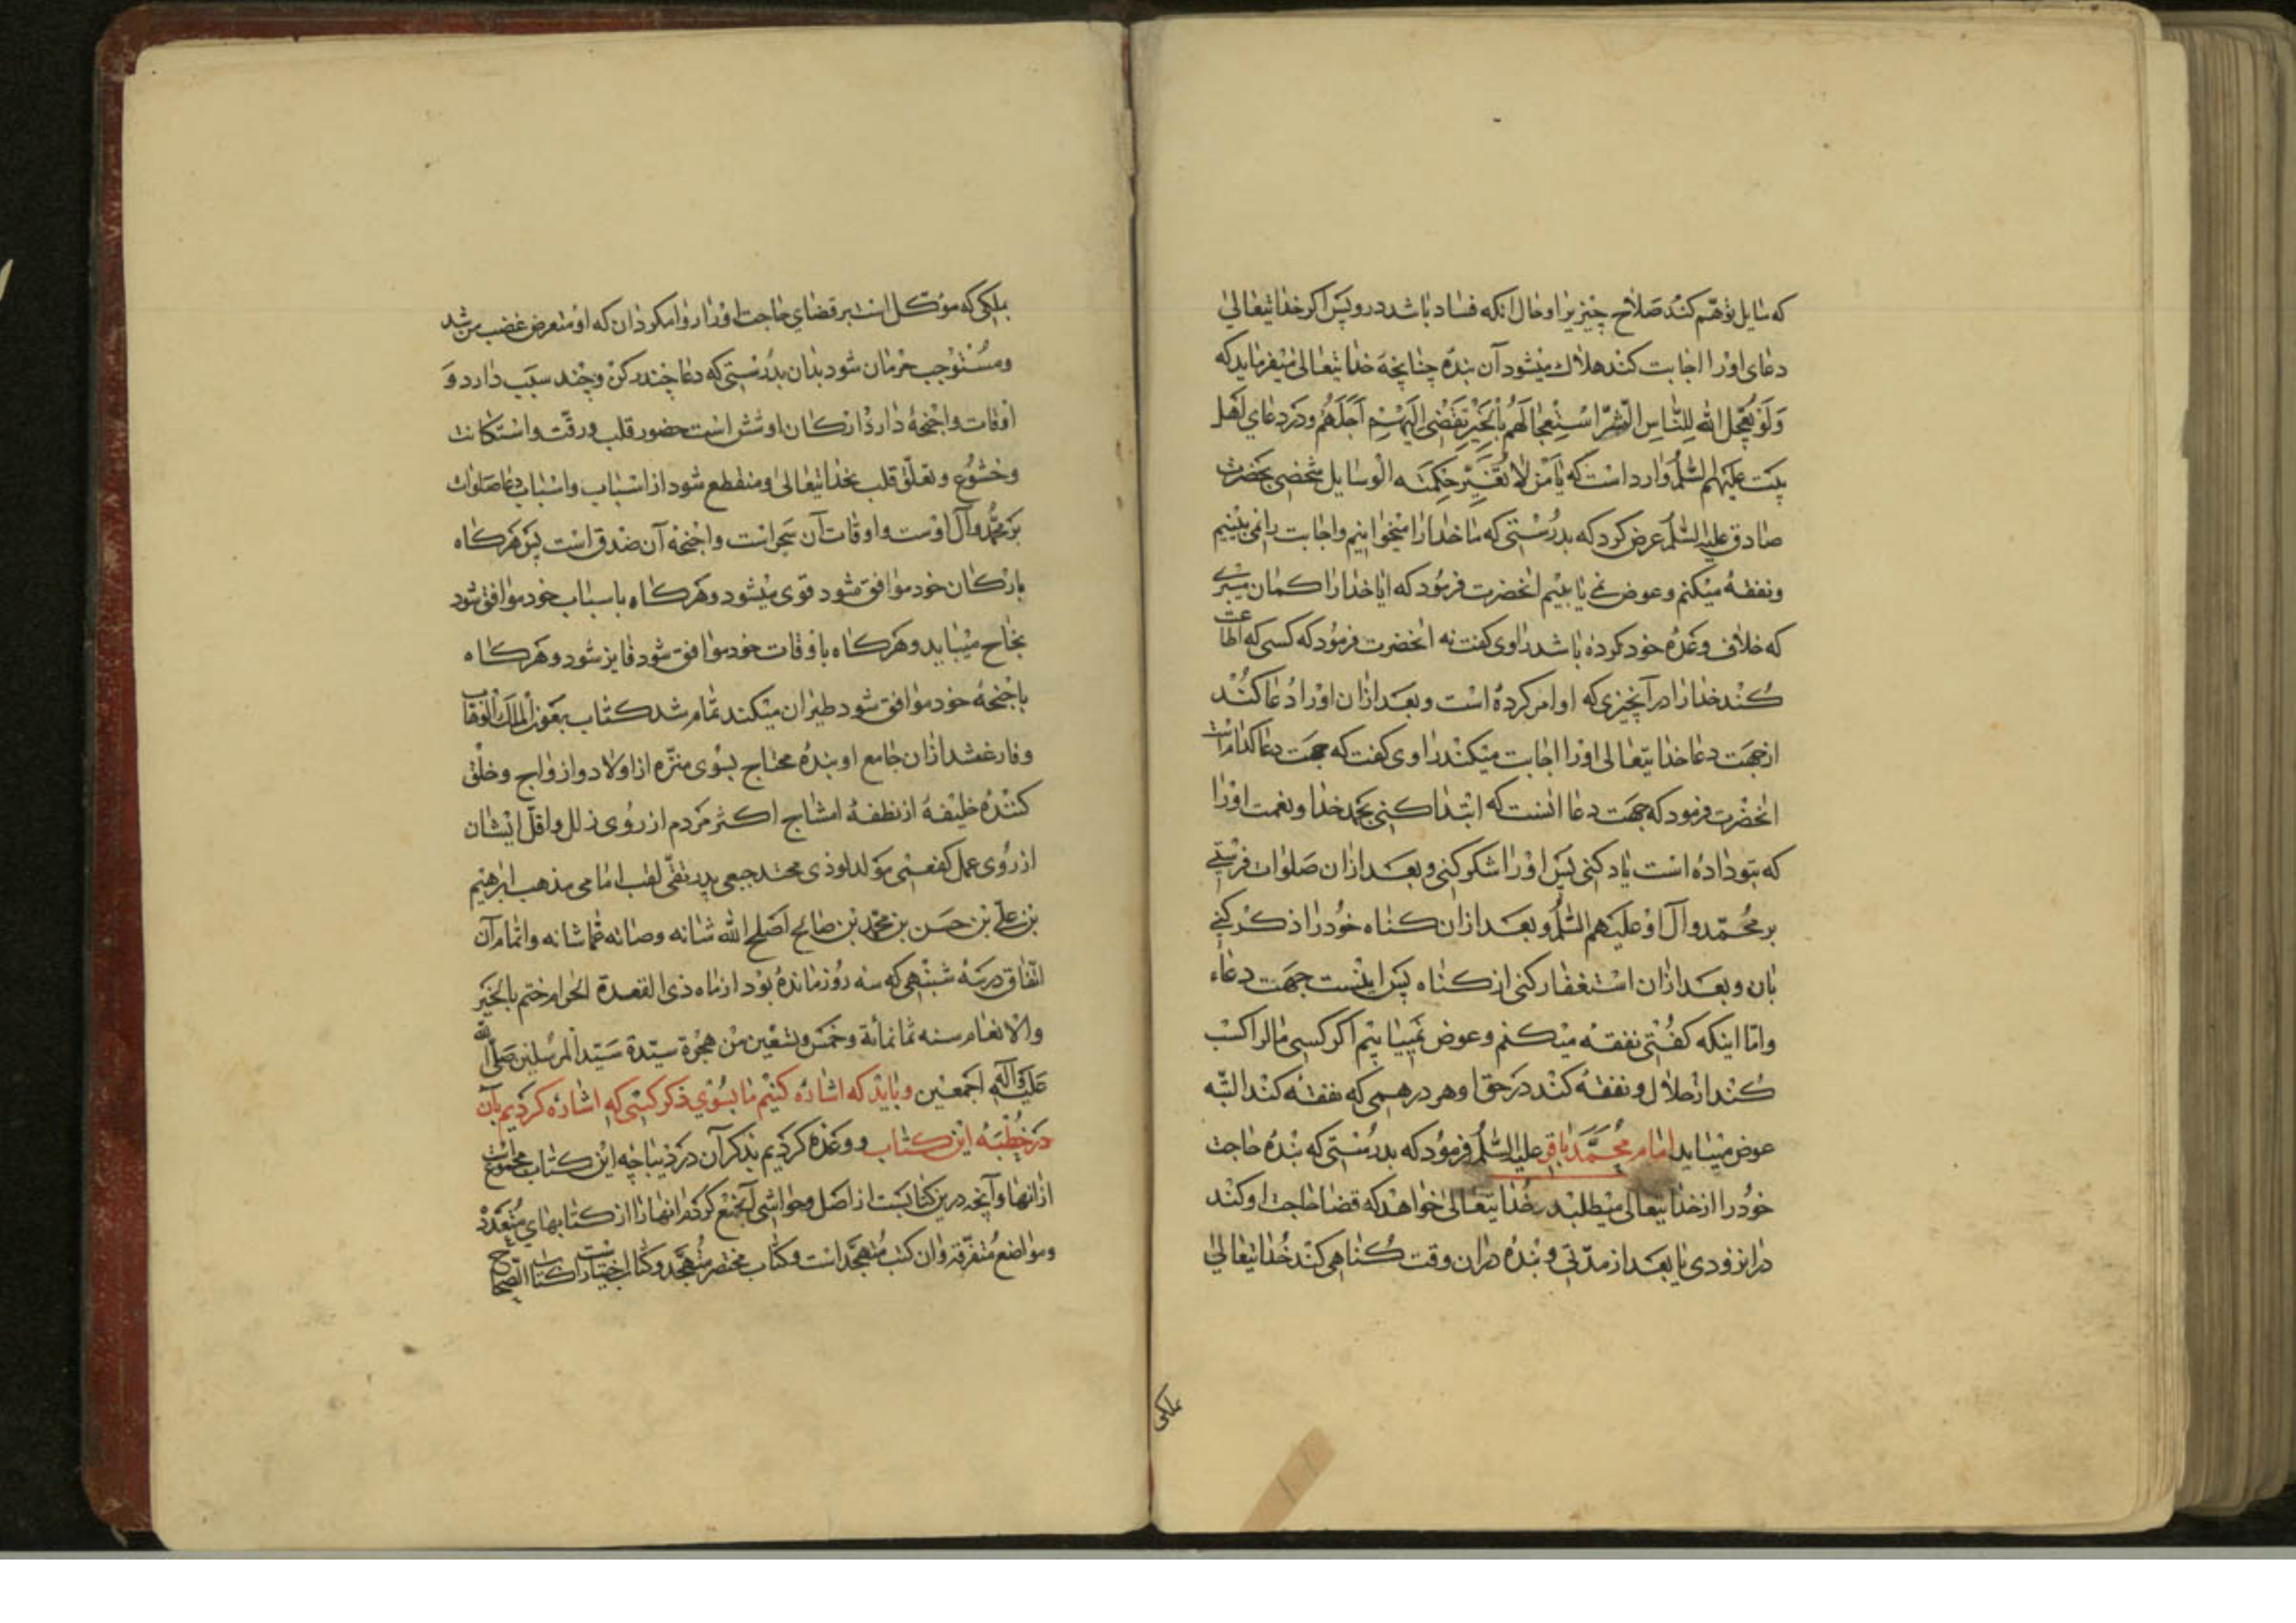 که سایل توهّم کند صلاح چیزیرا و حال انکه فساد باشد در و پس اکر خدایتعالی
دعای اورا اجابت کند هلاك میشود آن بنده چنانچه خدایتعالی میفرماید که
وَلَوْ یُعَجِّلُ اللّٰه لِلنّاسِ الشَّرَّ اسْتِعْجالَهُم بِالْخَیْرِ لَقُضِیَ اِلَیْهِمْ اَجَلُهُم و در دعای اهل
بیت علیهم السّلم وارد است که یا مَنْ لا تُغَیِّرُ حِکْمَتَه الوسایل شخصی بحضرت
صادق علیه السّلم عرض کرد که بدرستی که ما خدارا میخوانیم و اجابت را نمی بینیم
و نفقه میکنم و عوض نمی یابیم انحضرت فرمود که ایا خدارا کمان میبری
که خلاف وعده خود کرده باشد راوی کفت نه انحضرت فرمود که کسی که اطاعت
کند خدارا در آنچیزی که او امر کرده است و بعد ازان اورا دعا کند
از جهت دعا خدایتعالی اورا اجابت میکند راوی کفت که جهت دعا کدامست
انحضرت فرمود که جهت دعا انست که ابتدا کنی بحمد خدا و نعمت اورا
که بتو داده است یاد کنی پس اورا شکر کنی و بعد ازان صلوات فرستی
بر محمّد و آل او علیهم السّلم و بعد ازان کناه خود را ذکر کنی
بان و بعد ازان استغفار کنی از کناه پس اینست جهت دعاء
و امّا اینکه کفتی نفقه میکنم و عوض نمییابیم اکر کسی مالرا کسب
کند از حلال و نفقه کند در حق او هر درهمی که نفقه کند البتّه
عوض مییابد امام محمّد باقر علیه السّلم فرمود که بدرستی که بنده حاجت
خود را از خدایتعالی میطلبد و خدایتعالی خواهد که قضا حاجت او کند
در انزودی یا بعد از مدّتی و بنده دران وقت کناهی کند خدایتعالی
بملکی
بملکی که موکّل است بر قضای حاجت اورا روا مکردان که او متعرض غضب من شد
و مستوجب حرمان شود بدان بدرستی که دعا چند رکن و چند سبب دارد و
اوقات و اجنحهٔ دارد ارکان او شش است حضور قلب و رقّت و استکانت
و خشوع و تعلّق قلب بخدایتعالی و منقطع شود از اسباب و اسباب دعا صلوات
بر محمّد و آل اوست و اوقات آن سحر است و اجنحهٔ آن صدق است پس هرکاه
بارکان خود موافق شود قوی میشود و هرکاه باسباب خود موافق شود
نجاح مییابد و هرکاه باوقات خود موافق شود فایز شود و هرکاه
باجنحهٔ خود موافق شود طیران میکند تمام شد کتاب بعون الملك الوهّاب
و فارغ شد ازان جامع او بندهٔ محتاج بسوی منزّه از اولاد و ازواج و خلق
کنندهٔ خلیفهٔ از نطفهٔ امشاج اکثر مردم از روی زلل و اقلّ ایشان
از روی عمل کفعمی مولد لوذی محتد جبعی پدر تقی لقب امامی مذهب ابرهیم
بن علی بن حسن بن محمّد بن صالح اصلح اللّٰه شانه و صانه عمّا شانه و اتمام آن
اتّفاق در سه شنبهی که سه روز مانده بود از ماه ذی القعدة الحرام ختم بالخیر
والانعام سنه ثمانمائة و خمس و تسعین من هجرة سیّدة سیّد المرسلین صلّی اللّٰه
علیه و آله اجمعین و باید که اشاره کنیم ما بسوی ذکر کتبی که اشاره کردیم بآن
در خطبهٔ این کتاب و وعده کردیم بذکر آن در دیباچه این کتاب مجموعست
ازانها و آنچه درین کتابست از اصل و حواشی آن جمع کردم انهارا از کتابهای متعدد
و مواضع متفرّقه و ان کتب متهجّد است و کتاب مختصر متهجّد و کتاب اختیار است